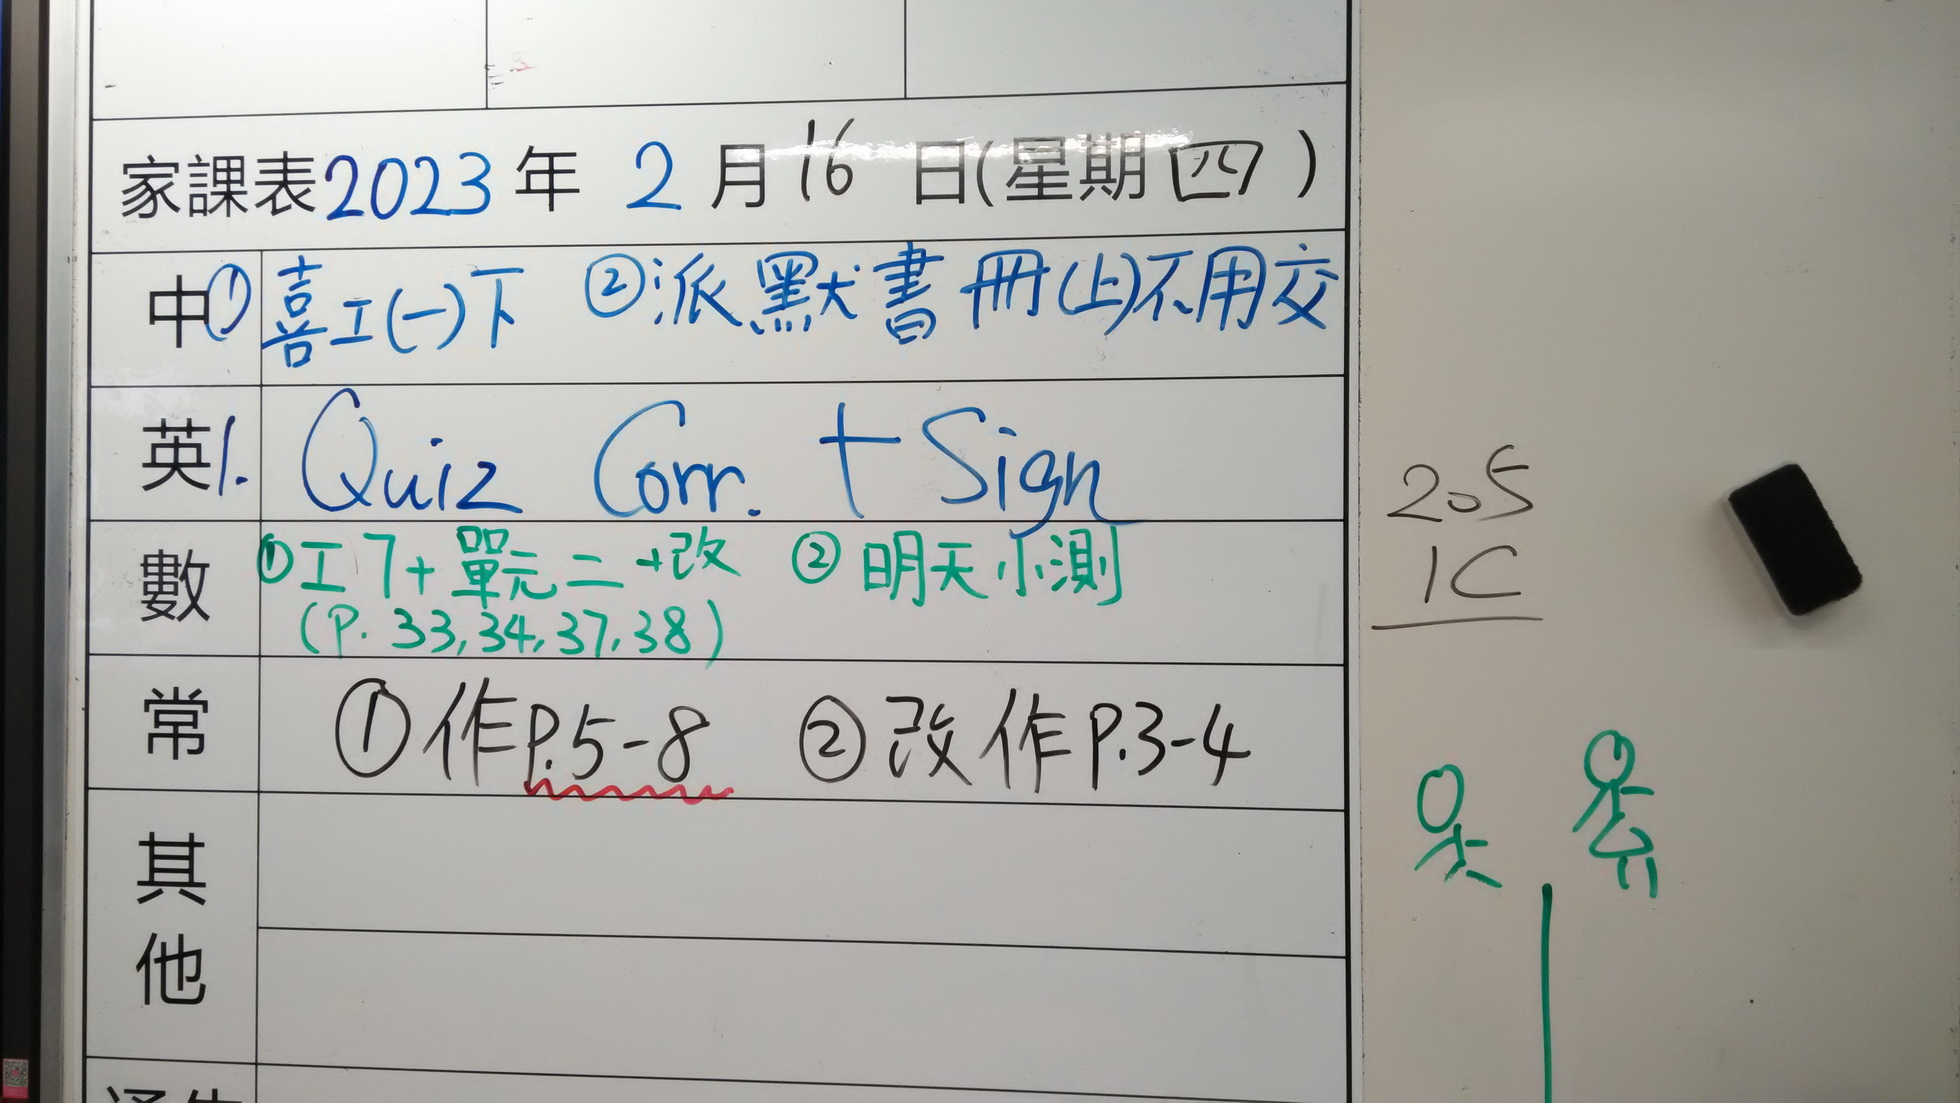 家課表2023年 2月16日(星期四)
中① 喜工(一)下 ②派默書冊(上)不用交
英1. Quiz Corr. + Sign
數 ①工7+單元二+改 ②明天小測
(P. 33,34,37,38)
常 ①作P.5-8 ②改作P.3-4
其他
205
1C